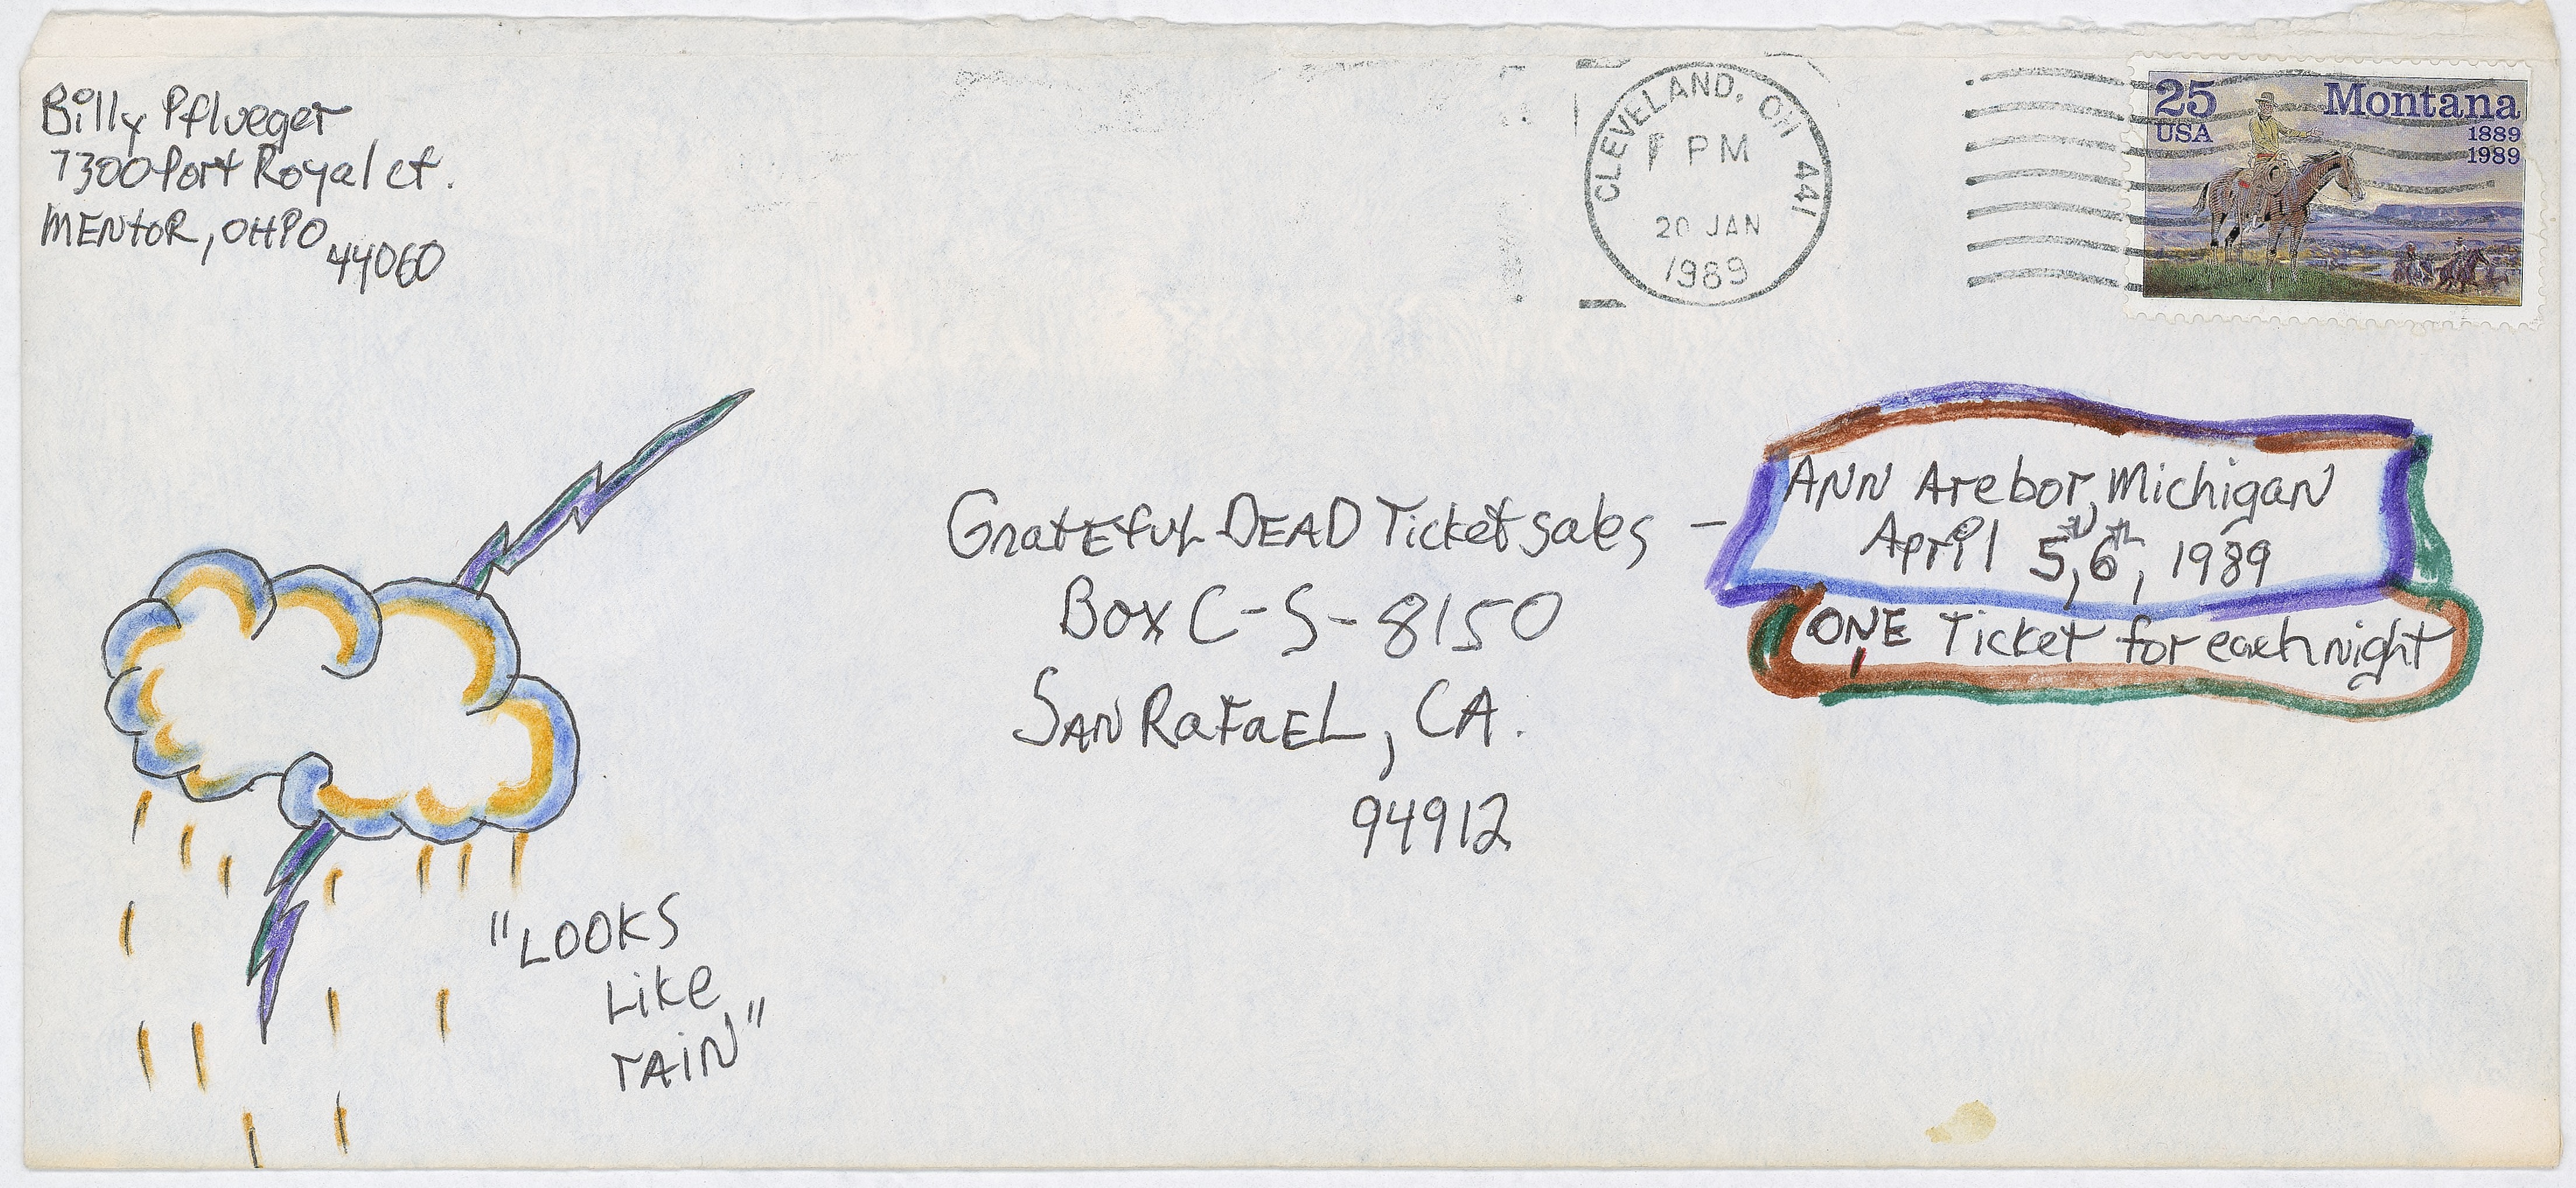 Billy Pflueger
7300 Port Royal ct.
MENtOR, OHIO
44060
CLEVELAND, OH 441
PM
20 JAN
1989
25
USA
Montana
1889
1989
GratEfuL DEAD Ticket sales -
Box C-S-8150
SAN RaFaEL, CA.
94912
ANN Arebor, Michigan
April 5th, 6th, 1989
ONE Ticket for each night
"LOOKS
Like
rAiN"